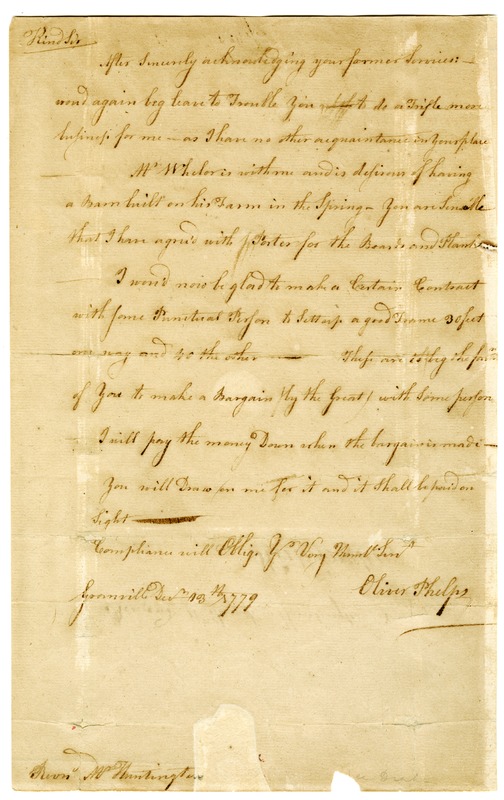 Kind Sir
After Sincerely acknowledging your former Services—
woud again beg leave to Trouble You to do a Trifle more
business for me — as I have no other acquaintance in Your place
Mr Wheler is with me and is desirous of having
a Barn built on his Farm in the Spring — You are Sensible
that I have agreed with Porter for the Boards and Plank
I woud now be glad to make a Certain Contract
with some Punctual Person to Sett up a good Frame 30 feet
one way and 40 the other — These are to beg the favr
of You to make a Bargain (by the Great) with Some person
I will pay the money Down when the bargain is made —
You will Draw on me for it and it Shall be paid on
Sight —
Compliance will Oblige Yr Very Humbl Servt
Granville Decr 18th 1779 Oliver Phelps
Revnd Mr Huntington